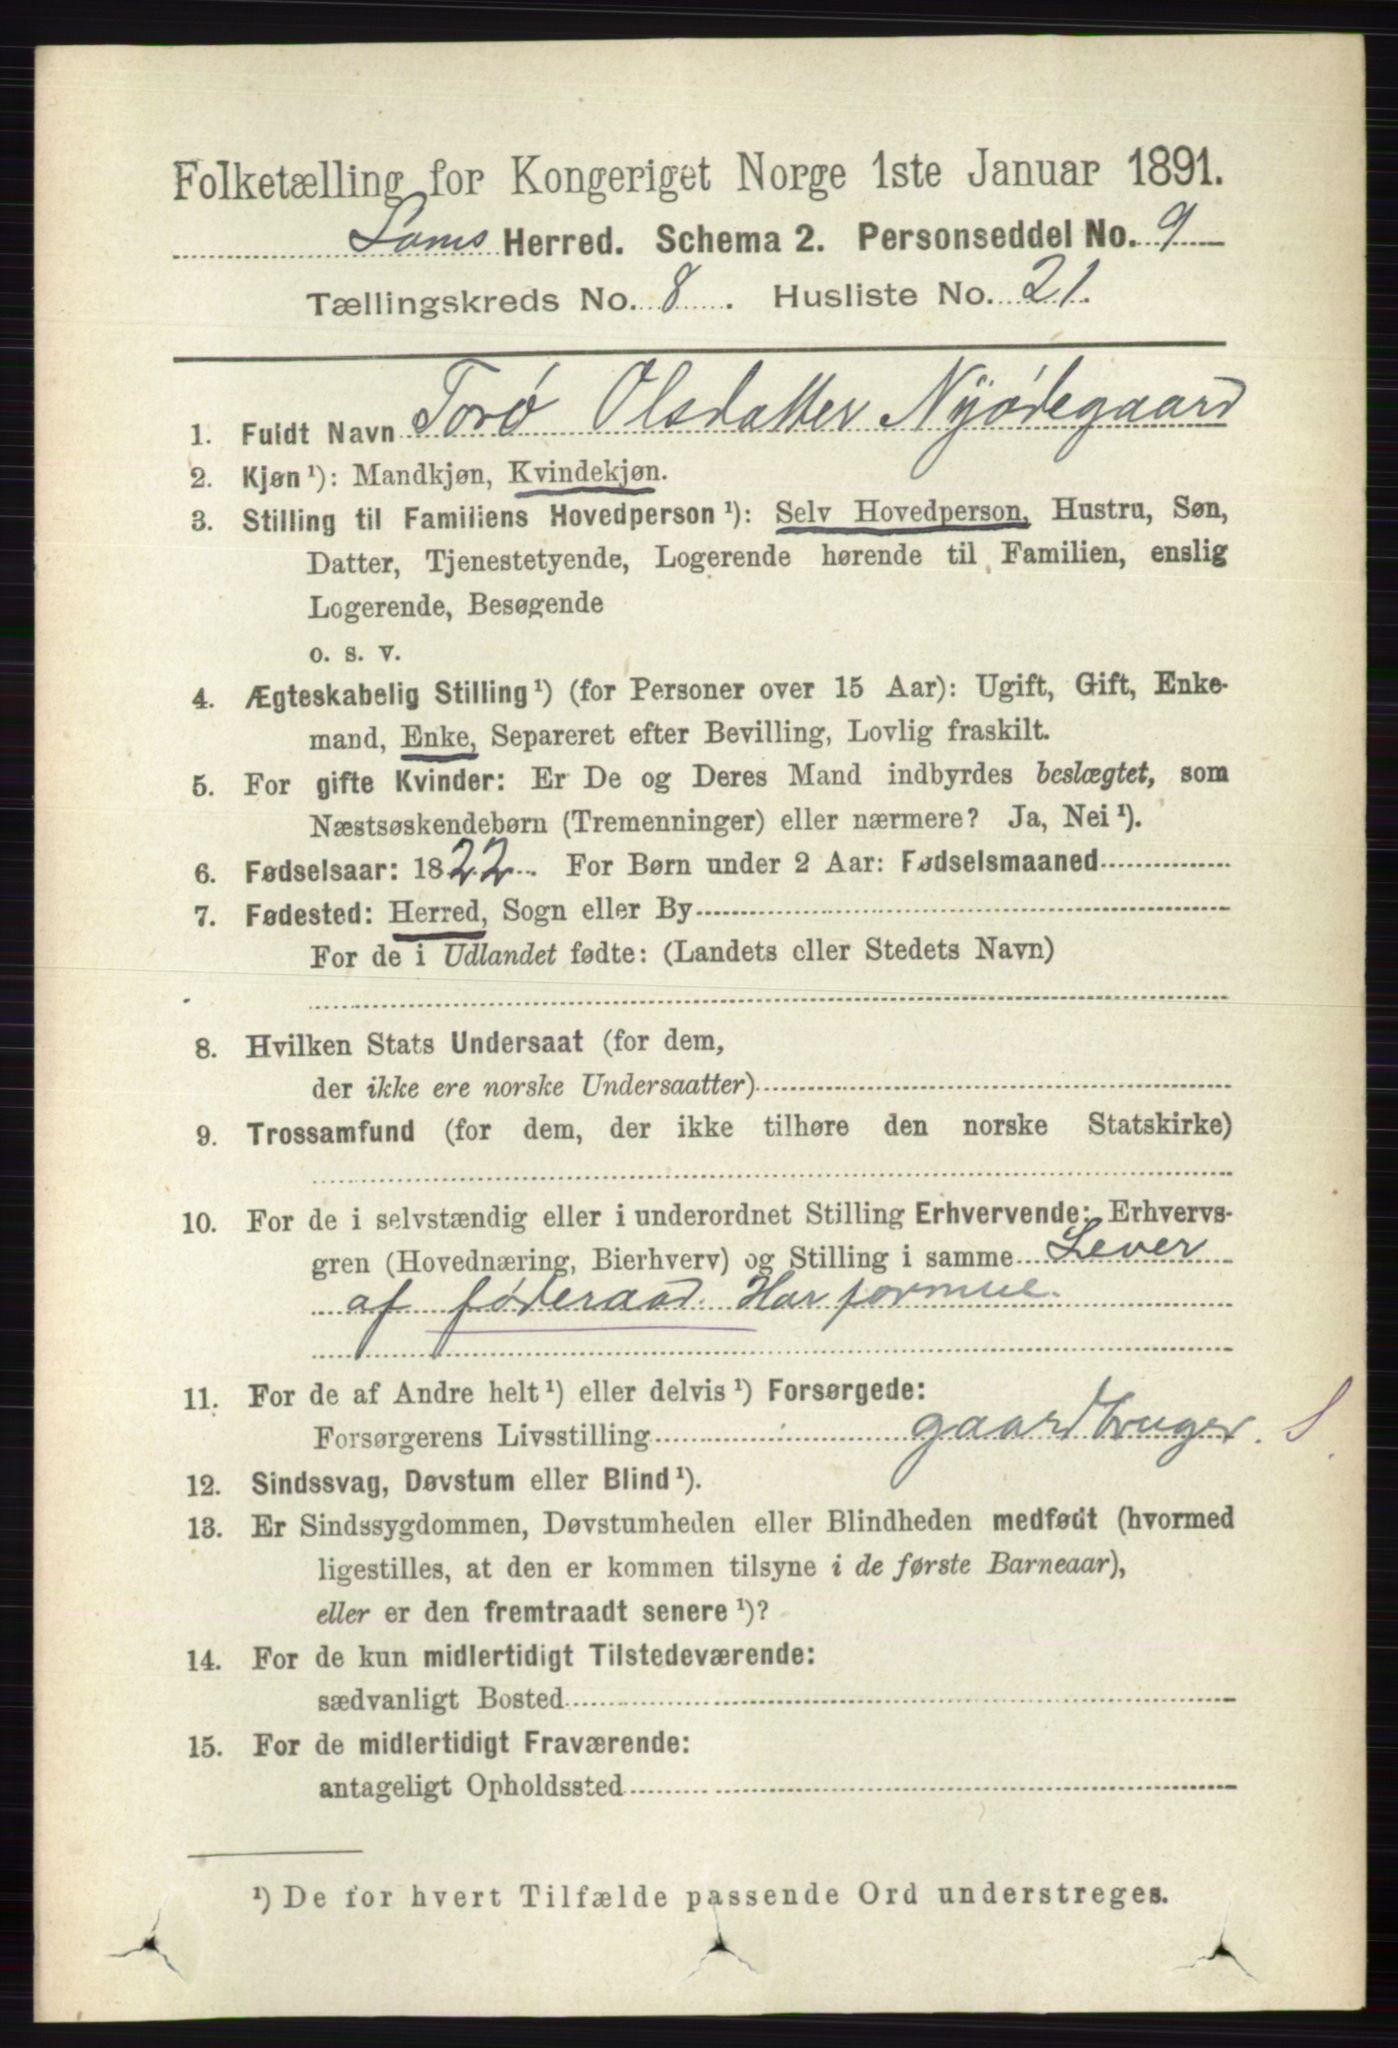 Folketælling for Kongeriget Norge 1ste Januar 1891.
Loms Herred. Schema 2. Personseddel No. 9
Tællingskreds No. 8. Husliste No. 21.
1. Fuldt Navn Torø Olsdatter Nyødegaard
2. Kjøn ¹): Mandkjøn, Kvindekjøn.
3. Stilling til Familiens Hovedperson ¹): Selv Hovedperson, Hustru, Søn,
Datter, Tjenestetyende, Logerende hørende til Familien, enslig
Logerende, Besøgende
o. s. v.
4. Ægteskabelig Stilling ¹) (for Personer over 15 Aar): Ugift, Gift, Enke-
mand, Enke, Separeret efter Bevilling, Lovlig fraskilt.
5. For gifte Kvinder: Er De og Deres Mand indbyrdes beslægtet, som
Næstsøskendebørn (Tremenninger) eller nærmere? Ja, Nei ¹).
6. Fødselsaar: 1822. For Børn under 2 Aar: Fødselsmaaned
7. Fødested: Herred, Sogn eller By
For de i Udlandet fødte: (Landets eller Stedets Navn)
8. Hvilken Stats Undersaat (for dem,
der ikke ere norske Undersaatter)
9. Trossamfund (for dem, der ikke tilhøre den norske Statskirke)
10. For de i selvstændig eller i underordnet Stilling Erhvervende: Erhvervs-
gren (Hovednæring, Bierhverv) og Stilling i samme Lever
af føderaad. Har formue.
11. For de af Andre helt ¹) eller delvis ¹) Forsørgede:
Forsørgerens Livsstilling gaardbruger. S.
12. Sindssvag, Døvstum eller Blind ¹).
13. Er Sindssygdommen, Døvstumheden eller Blindheden medfødt (hvormed
ligestilles, at den er kommen tilsyne i de første Barneaar),
eller er den fremtraadt senere ¹)?
14. For de kun midlertidigt Tilstedeværende:
sædvanligt Bosted
15. For de midlertidigt Fraværende:
antageligt Opholdssted
¹) De for hvert Tilfælde passende Ord understreges.